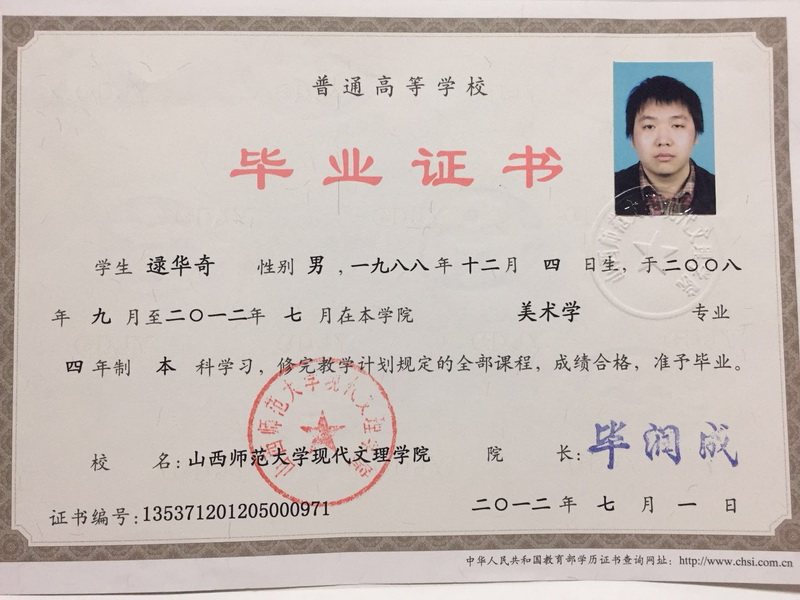 普通高等学校
毕业证书
学生 逯华奇 性别 男 ,一九八八年 十二月 四 日生，于二〇〇八
年 九 月至二〇一二年 七 月在本学院 美术学 专业
四 年制 本 科学习，修完教学计划规定的全部课程，成绩合格，准予毕业。
山西师范大学现代文理学院
校 名：山西师范大学现代文理学院 院 长：毕润成
证书编号：135371201205000971 二〇一二年 七 月 一 日
中华人民共和国教育部学历证书查询网址：http://www.chsi.com.cn